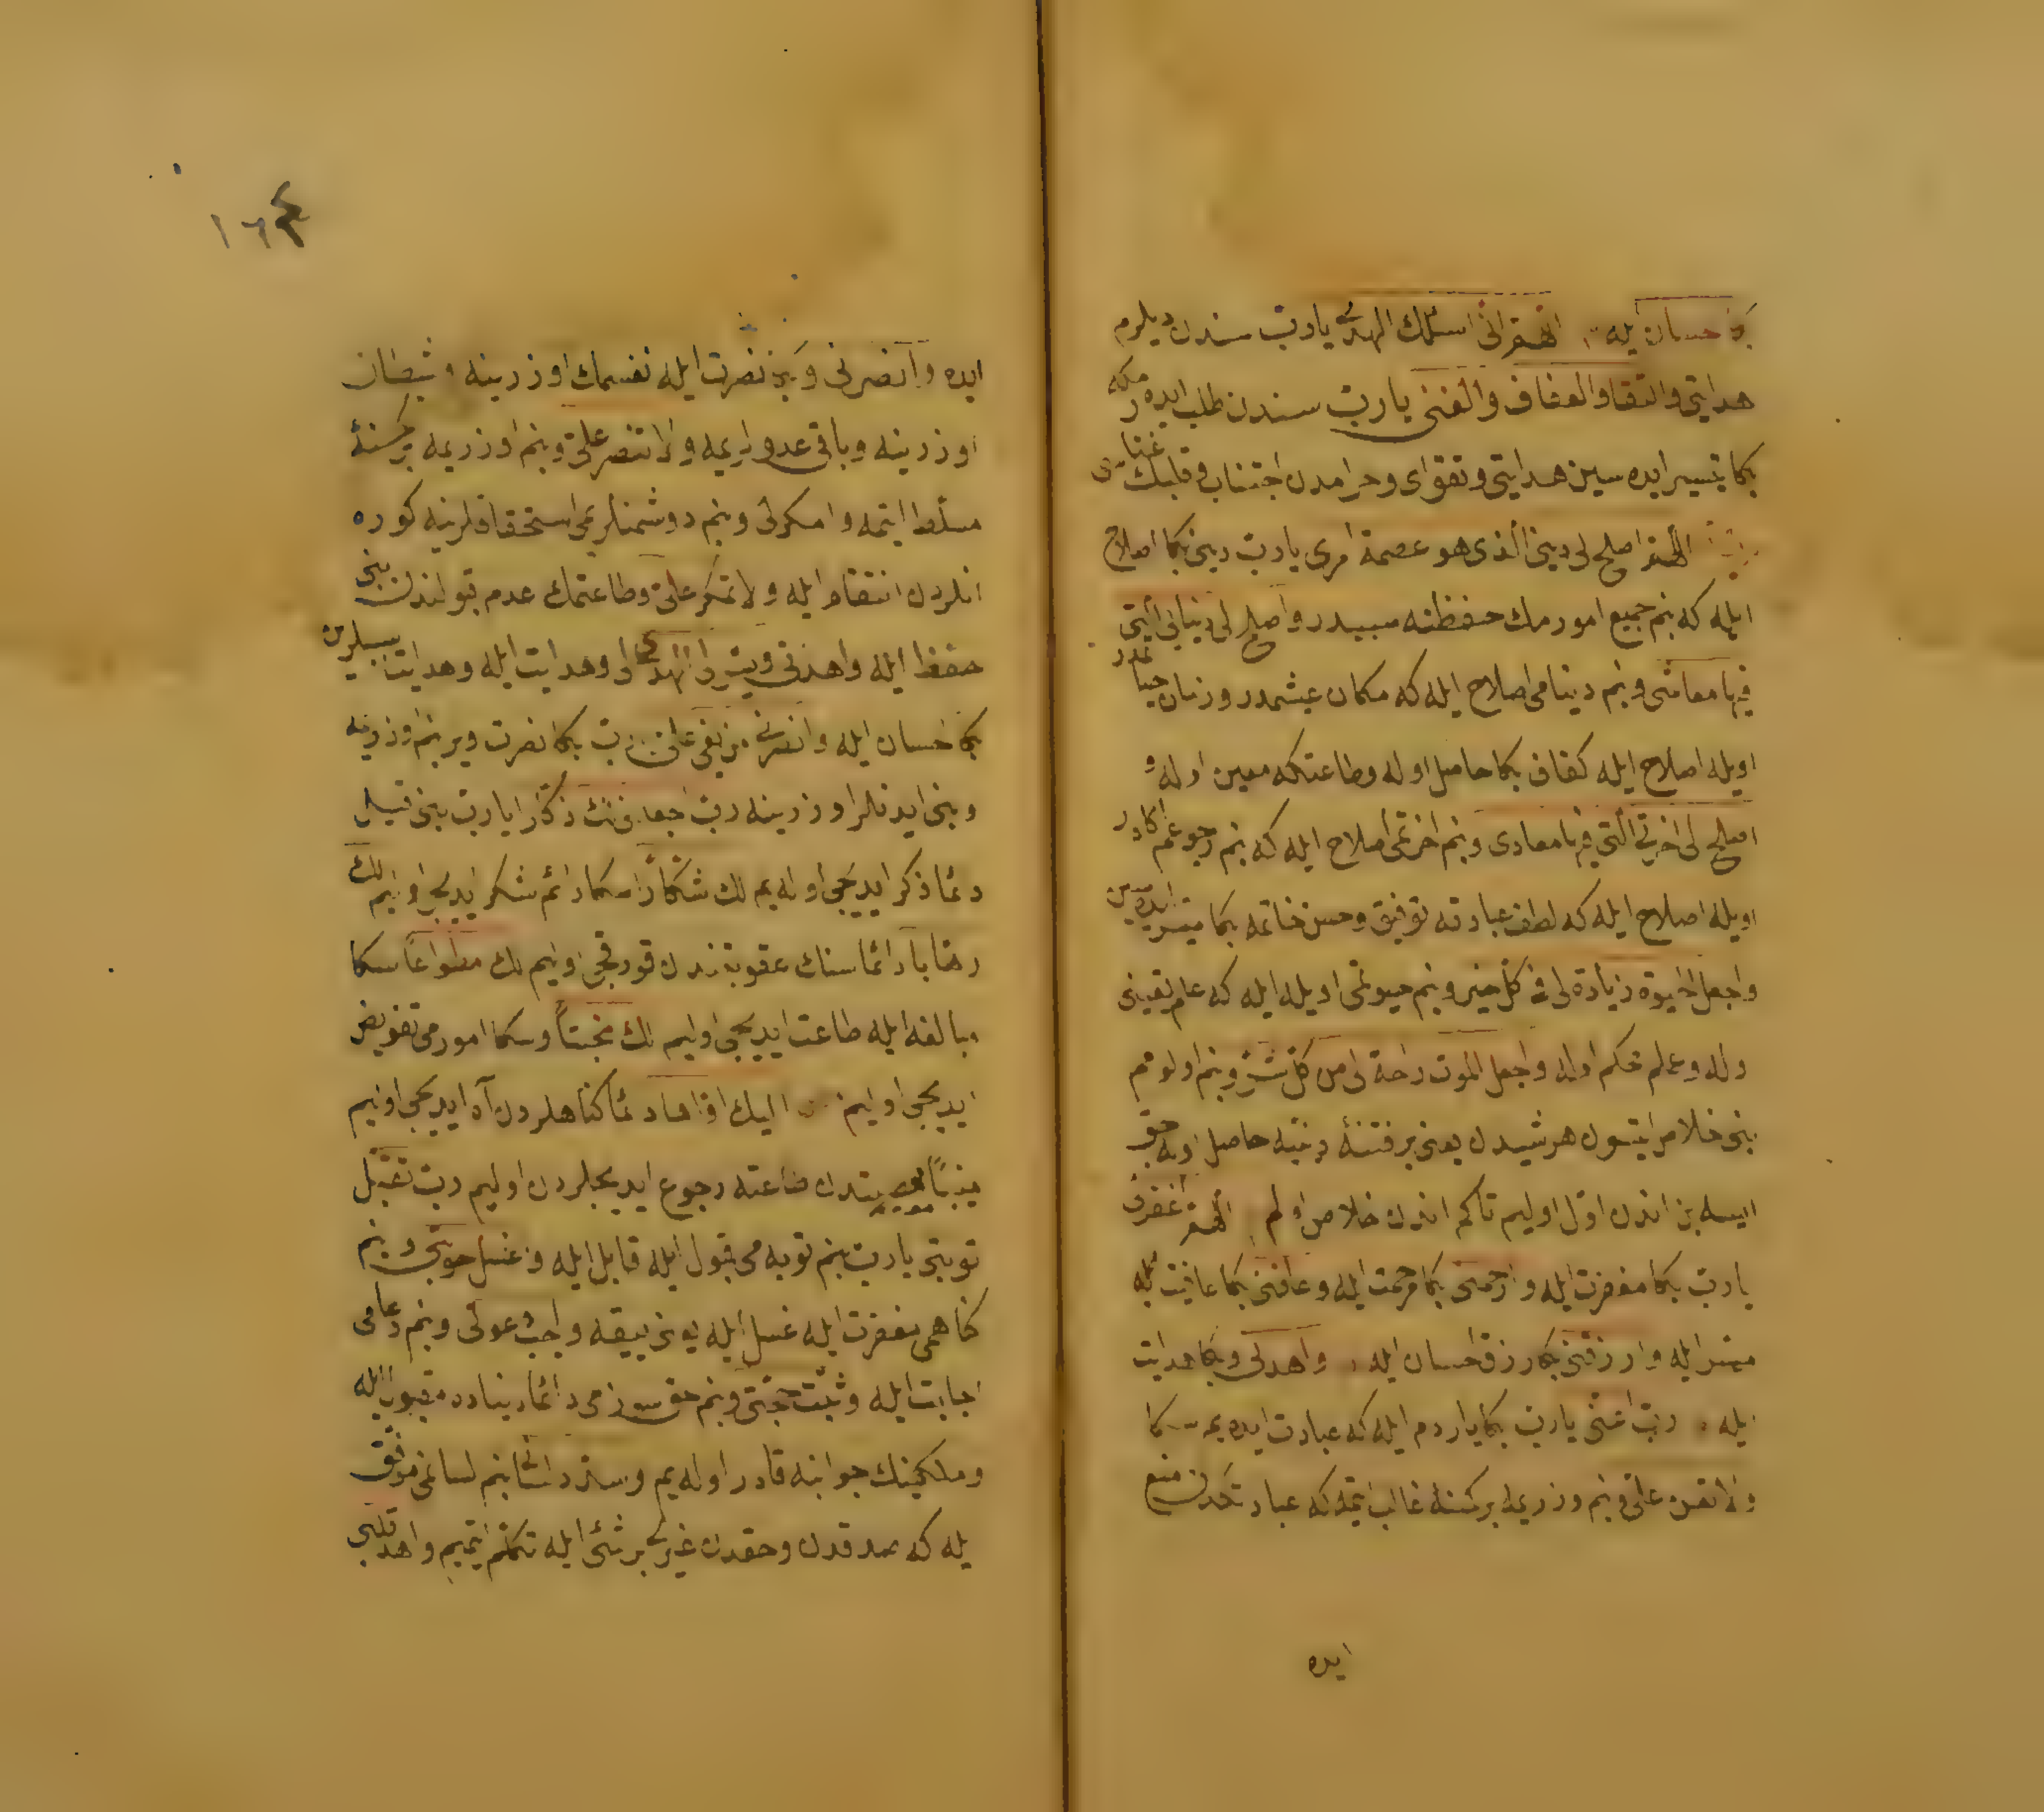 بكا احسان ايله اللهم انى اسئلك الهدى يا رب سندن ديلرم
هدايتى والتقا والعفاف والغنى يا رب سندن طلب ايده رمكه
بكا تيسير ايده سين هدايتى و تقواى و حرامدن اجتناب و قلبك غناسى
اللهم اصلح لى دينى الذى هو عصمة امرى يا رب دينى بكا اصلاح
ايله كه بنم جميع امورمك حفظنه سببدر واصلح لى دنياى التى
فيها معاشى و بنم دنيامى اصلاح ايله كه مكان عيشمدر و زمان حياتمدر
اويله اصلاح ايله كفاف بكا حاصل اوله و طاعتكه معين اوله و
اصلح لى اخرتى التى فيها معادى و بنم اخرتمى اصلاح ايله كه بنم رجوعم اكادر
اويله اصلاح ايله كه لطف عبادته توفيق و حسن خاتمه بكا ميسر ايده سين
واجعل الحيوة زيادة لى فى كل خير و بنم حيوتمى اويله ايله كه علم يقينى
وله و عملم محكم اوله واجعل الموت راحة لى من كل شر و بنم اولومم
بنى خلاص ايتسون هر شيدن يعنى بر فتنۀ دينيه حاصل اوله جق
ايسه بن اندن اول اوليم تاكم اندن خلاص اولم اللهم اغفرلى
يا رب بكا مغفرت ايله وارحمنى بكا مرحمت ايله وعافنى بكا عافيت ايله
ميسر ايله وارزقنى بكا رزق احسان ايله واهدنى و بكا هدايت
ايله رب اعنى يا رب بكا ياردم ايله كه عبادت ايده يم سكا
ولا تعن على و بنم اوزريمه بر كسنۀ غالب ايتمه كه عبادتكدن منع
ايده
١٦٤
ايده وانصرنى و بكا نصرت ايله نفسمك اوزرينه و شيطان
اوزرينه و باقى عدولريمه ولا تنصر على و بنم اوزريمه بر كسنۀ
مسلط ايتمه وامكرلى و بنم دوشمنلريمى استحقاقلرينه كوره
انلردن انتقام ايله ولا تمكر على و طاعتمك عدم قبولندن بنى
حفظ ايله واهدنى ويسر لى الهدى لى و هدايت ايله و هدايت سببلرين
بكا احسان ايله وانصرنى من بغى على يا رب بكا نصرت وير بنم اوزريمه
و بغى ايدنلر اوزرينه رب اجعلنى لك ذكارا يا رب بنى قيل
دائما ذكر ايديجى اوله يم لك شكارا سكا دائم شكر ايديجى اوليم لك
رهابا دائما سنك عقوبتندن قورقجى اوليم لك مطواعا سكا
مبالغه ايله طاعت ايديجى اوليم لك مخبتا و سكا امورمى تفويض
ايديجى اوليم اليك اواها دائما كناهلردن آه ايديجى اوليم
منيبا معصيتدن طاعته رجوع ايديجيلردن اوليم رب تقبل
توبتى يا رب بنم توبه مى قبول ايله قابل ايله واغسل حوبتى و بنم
كناهمى مغفرت ايله غسل ايله يعنى ييقه واجب دعوتى و بنم دعامى
اجابت ايله وثبت حجتى و بنم حق سوزمى دائما دنياده مقبول ايله
و ملكينك جوابنه قادر اوله يم وسدد لسانى بنم لسانمى موفق
ايله كه صدقدن و حقدن غيرى بر شئ ايله تكلم ايتميم واهد قلبى